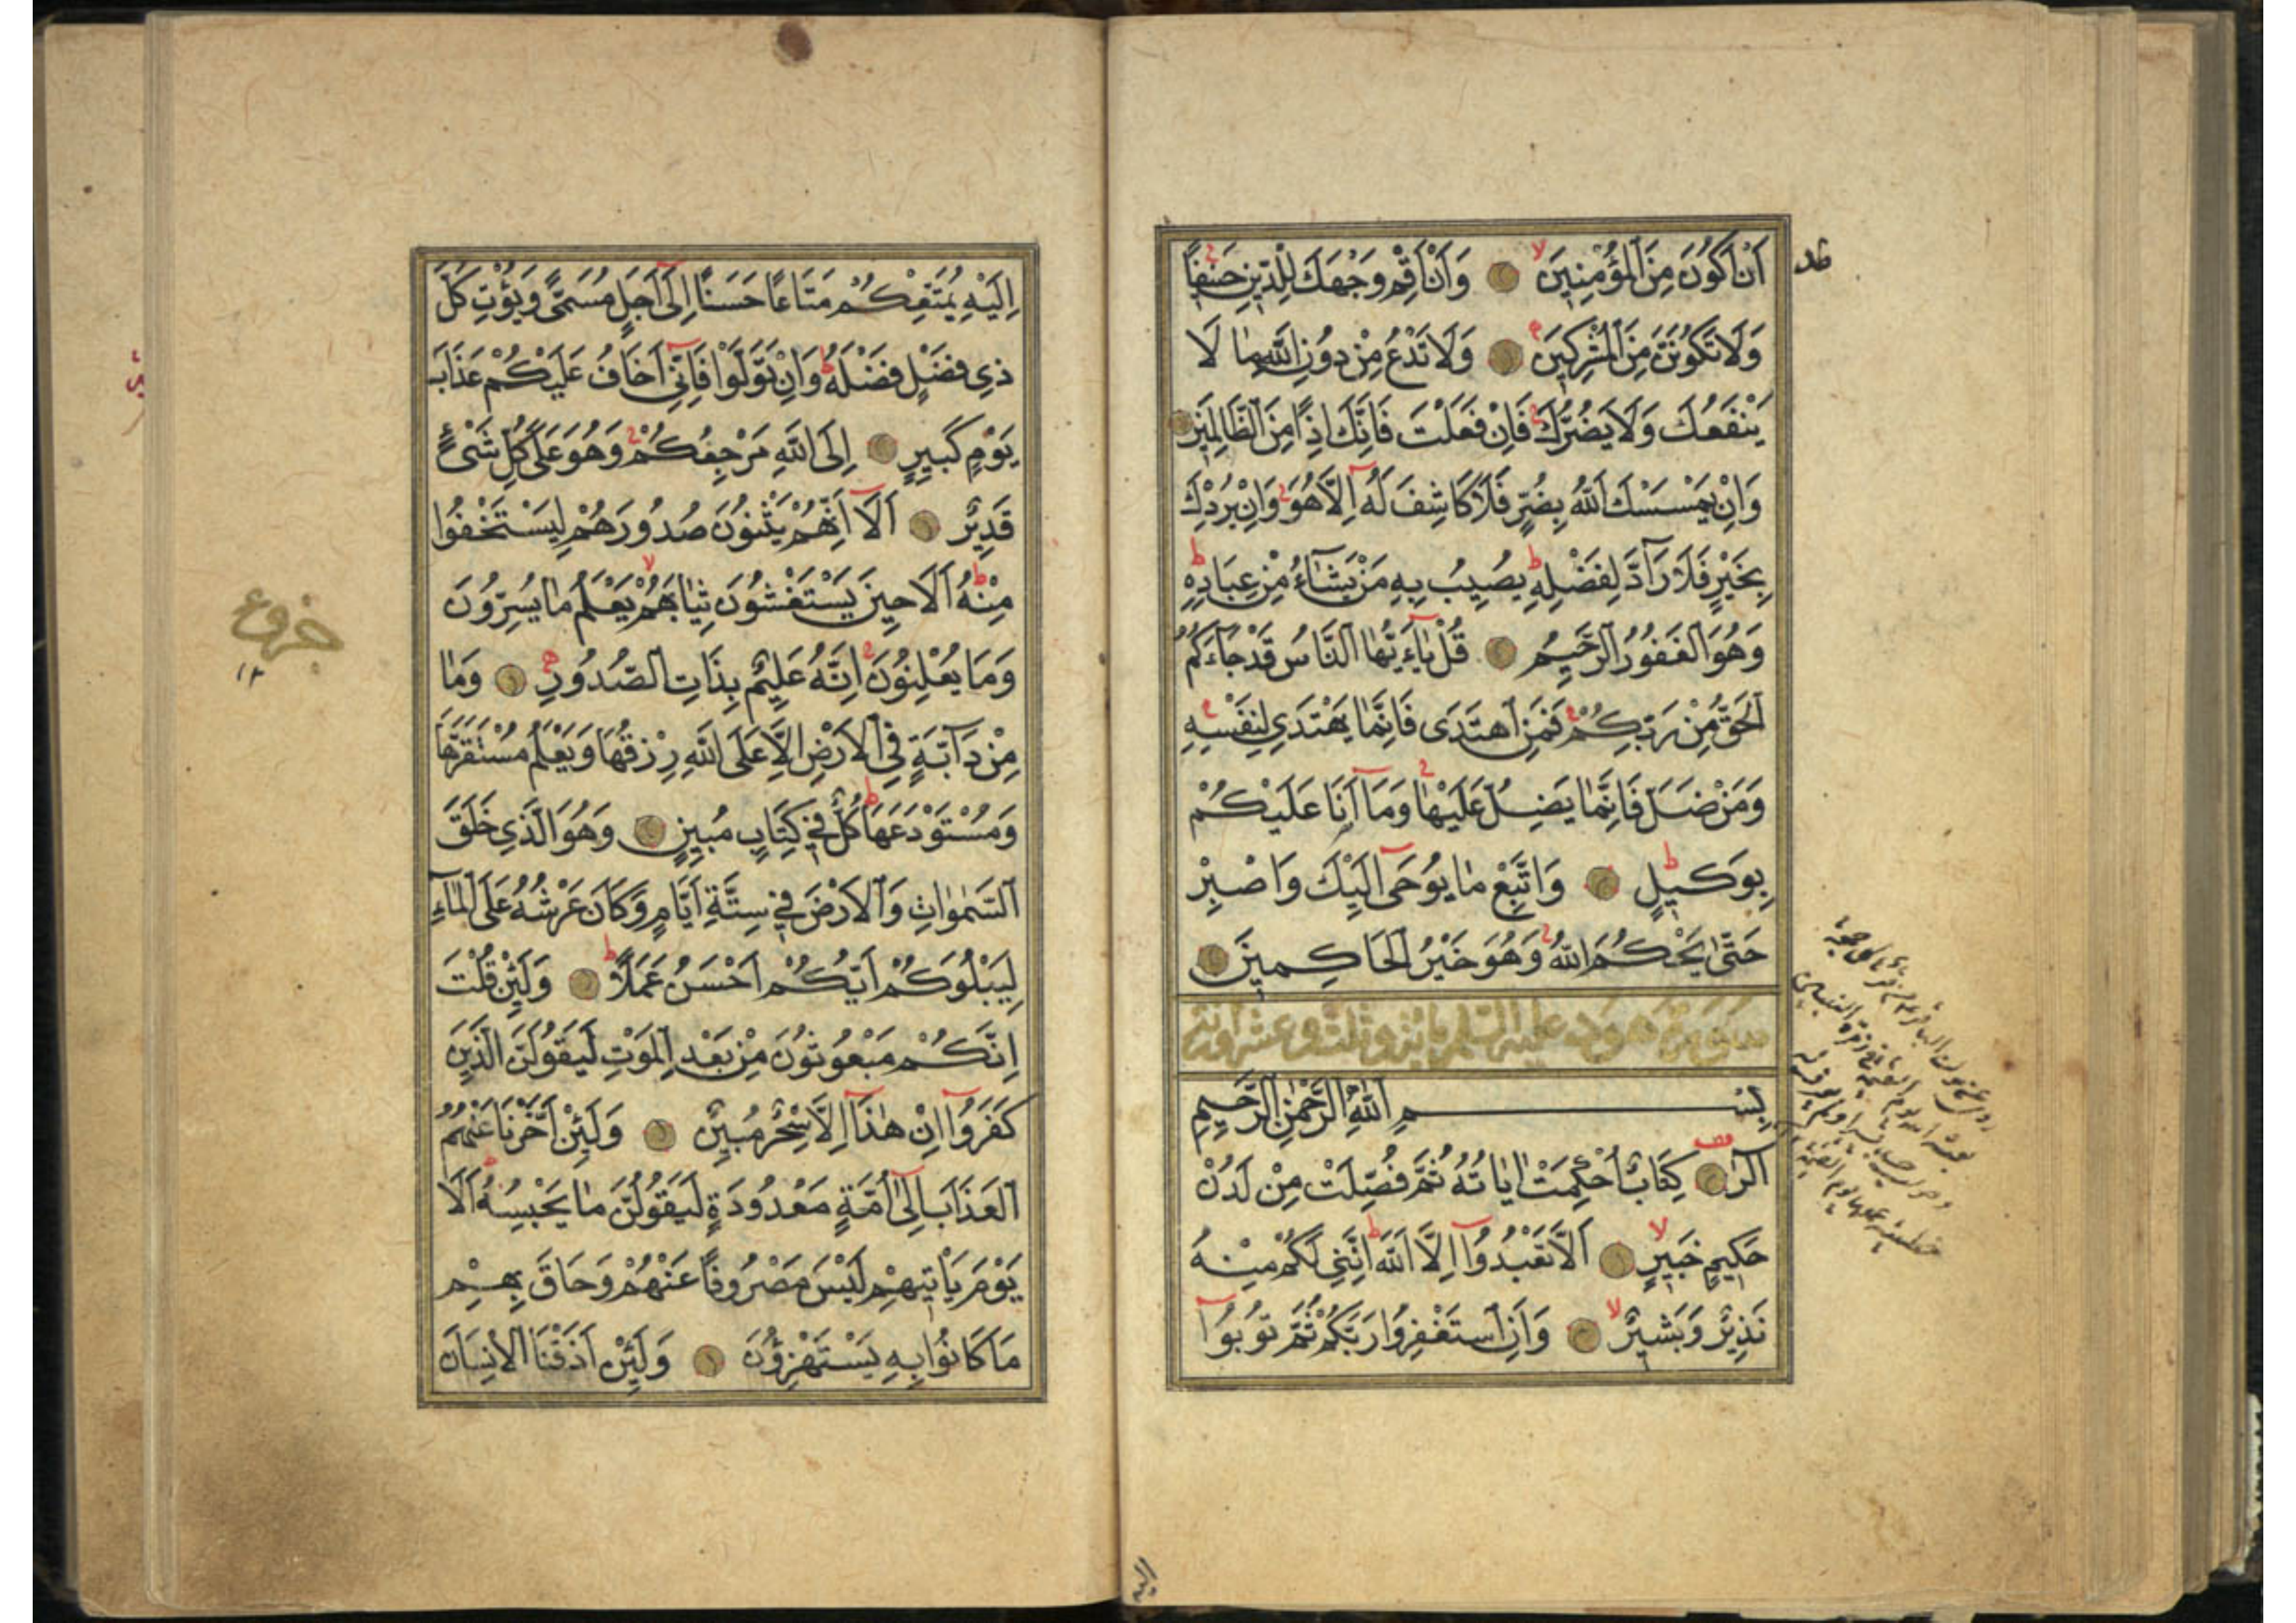 اَنْ اَكُونَ مِنَ الْمُؤْمِنِينَ وَاَنْ اَقِمْ وَجْهَكَ لِلدِّينِ حَنِيفًا
وَلَا تَكُونَنَّ مِنَ الْمُشْرِكِينَ وَلَا تَدْعُ مِنْ دُونِ اللّٰهِ مَا لَا
يَنْفَعُكَ وَلَا يَضُرُّكَ فَاِنْ فَعَلْتَ فَاِنَّكَ اِذًا مِنَ الظَّالِمِينَ
وَاِنْ يَمْسَسْكَ اللّٰهُ بِضُرٍّ فَلَا كَاشِفَ لَهُ اِلَّا هُوَ وَاِنْ يُرِدْكَ
بِخَيْرٍ فَلَا رَآدَّ لِفَضْلِهِ يُصِيبُ بِهِ مَنْ يَشَآءُ مِنْ عِبَادِهِ
وَهُوَ الْغَفُورُ الرَّحِيمُ قُلْ يَآءَيُّهَا النَّاسُ قَدْ جَآءَكُمُ
الْحَقُّ مِنْ رَبِّكُمْ فَمَنِ اهْتَدَى فَاِنَّمَا يَهْتَدِي لِنَفْسِهِ
وَمَنْ ضَلَّ فَاِنَّمَا يَضِلُّ عَلَيْهَا وَمَآ اَنَا عَلَيْكُمْ
بِوَكِيلٍ وَاتَّبِعْ مَا يُوحَى اِلَيْكَ وَاصْبِرْ
حَتّٰى يَحْكُمَ اللّٰهُ وَهُوَ خَيْرُ الْحَاكِمِينَ
سورة هود عليه السلم مائة وثلث وعشرون اية
بِسْمِ اللّٰهِ الرَّحْمٰنِ الرَّحِيمِ
الٓرٰ كِتَابٌ اُحْكِمَتْ اٰيَاتُهُ ثُمَّ فُصِّلَتْ مِنْ لَدُنْ
حَكِيمٍ خَبِيرٍ اَلَّا تَعْبُدُوٓا اِلَّا اللّٰهَ اِنَّنِي لَكُمْ مِنْهُ
نَذِيرٌ وَبَشِيرٌ وَاَنِ اسْتَغْفِرُوا رَبَّكُمْ ثُمَّ تُوبُوٓا
اليه
اِلَيْهِ يُمَتِّعْكُمْ مَتَاعًا حَسَنًا اِلَىٓ اَجَلٍ مُسَمًّى وَيُؤْتِ كُلَّ
ذِي فَضْلٍ فَضْلَهُ وَاِنْ تَوَلَّوْا فَاِنِّيٓ اَخَافُ عَلَيْكُمْ عَذَابَ
يَوْمٍ كَبِيرٍ اِلَى اللّٰهِ مَرْجِعُكُمْ وَهُوَ عَلَى كُلِّ شَيْءٍ
قَدِيرٌ اَلَآ اِنَّهُمْ يَثْنُونَ صُدُورَهُمْ لِيَسْتَخْفُوا
مِنْهُ اَلَا حِينَ يَسْتَغْشُونَ ثِيَابَهُمْ يَعْلَمُ مَا يُسِرُّونَ
وَمَا يُعْلِنُونَ اِنَّهُ عَلِيمٌ بِذَاتِ الصُّدُورِ وَمَا
مِنْ دَآبَّةٍ فِي الْاَرْضِ اِلَّا عَلَى اللّٰهِ رِزْقُهَا وَيَعْلَمُ مُسْتَقَرَّهَا
وَمُسْتَوْدَعَهَا كُلٌّ فِي كِتَابٍ مُبِينٍ وَهُوَ الَّذِي خَلَقَ
السَّمٰوَاتِ وَالْاَرْضَ فِي سِتَّةِ اَيَّامٍ وَكَانَ عَرْشُهُ عَلَى الْمَآءِ
لِيَبْلُوَكُمْ اَيُّكُمْ اَحْسَنُ عَمَلًا وَلَئِنْ قُلْتَ
اِنَّكُمْ مَبْعُوثُونَ مِنْ بَعْدِ الْمَوْتِ لَيَقُولَنَّ الَّذِينَ
كَفَرُوٓا اِنْ هٰذَآ اِلَّا سِحْرٌ مُبِينٌ وَلَئِنْ اَخَّرْنَا عَنْهُمُ
الْعَذَابَ اِلٰىٓ اُمَّةٍ مَعْدُودَةٍ لَيَقُولُنَّ مَا يَحْبِسُهُ اَلَا
يَوْمَ يَاْتِيهِمْ لَيْسَ مَصْرُوفًا عَنْهُمْ وَحَاقَ بِهِمْ
مَا كَانُوا بِهِ يَسْتَهْزِؤُنَ وَلَئِنْ اَذَقْنَا الْاِنْسَانَ